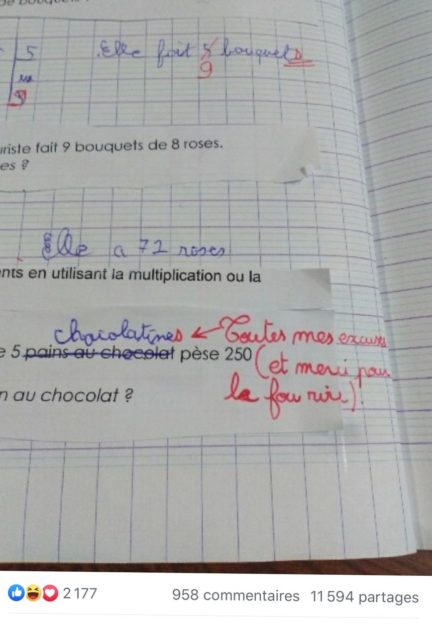 5 Elle fait 5 bouquets
9
uriste fait 9 bouquets de 8 roses.
es ?
Elle a 72 roses
nts en utilisant la multiplication ou la
chocolatines ← Toutes mes excuses
e 5 pains au chocolat pèse 250 (et merci pour
n au chocolat ? le fou rire)!
2 177 958 commentaires 11 594 partages